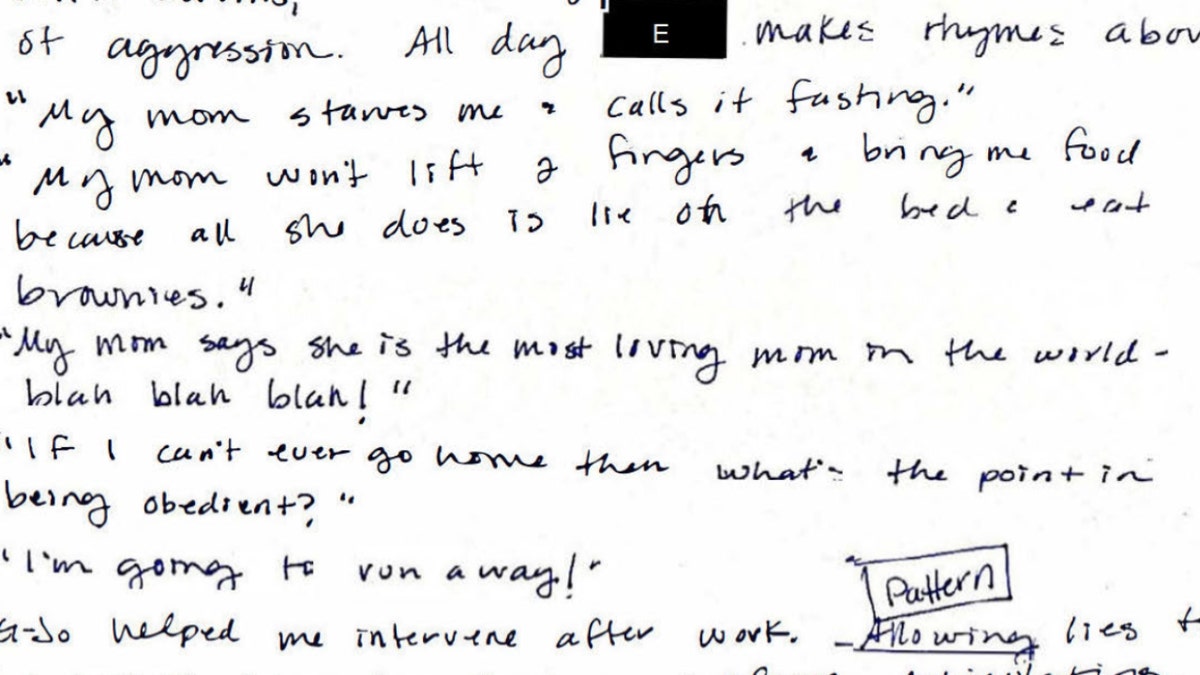 of aggression. All day E makes rhymes abou
"My mom starves me & calls it fasting."
"My mom won't lift 2 fingers & bring me food
because all she does is lie on the bed & eat
brownies."
"My mom says she is the most loving mom in the world -
blah blah blah! "
"If I can't ever go home then what's the point in
being obedient? "
"I'm going to run away!"
Pattern
helped me intervene after work. - Allowing lies t